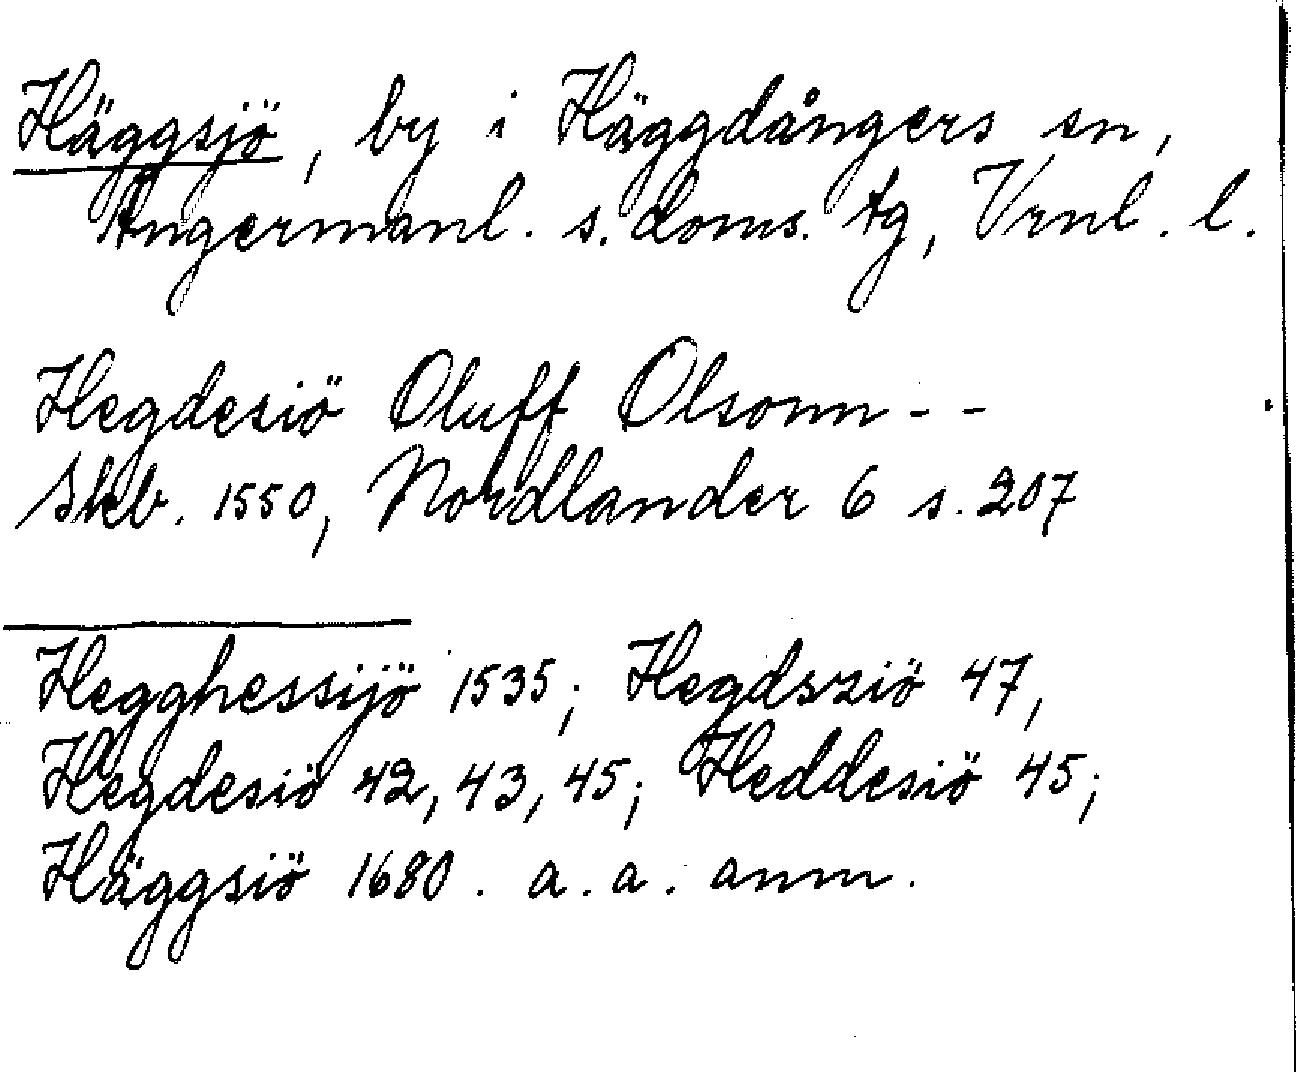 Häggsjö, by i Häggdångers sn,
Ångermanl. s. doms. tg, Vrnl. l.
Hegdesiö Oluff Olsonn - -
Skb. 1550, Nordlander 6 s. 207
Hegghessijö 1535; Hegdsziö 47,
Hegdesiö 42, 43, 45; Heddesiö 45;
Häggsiö 1680. a. a. anm.